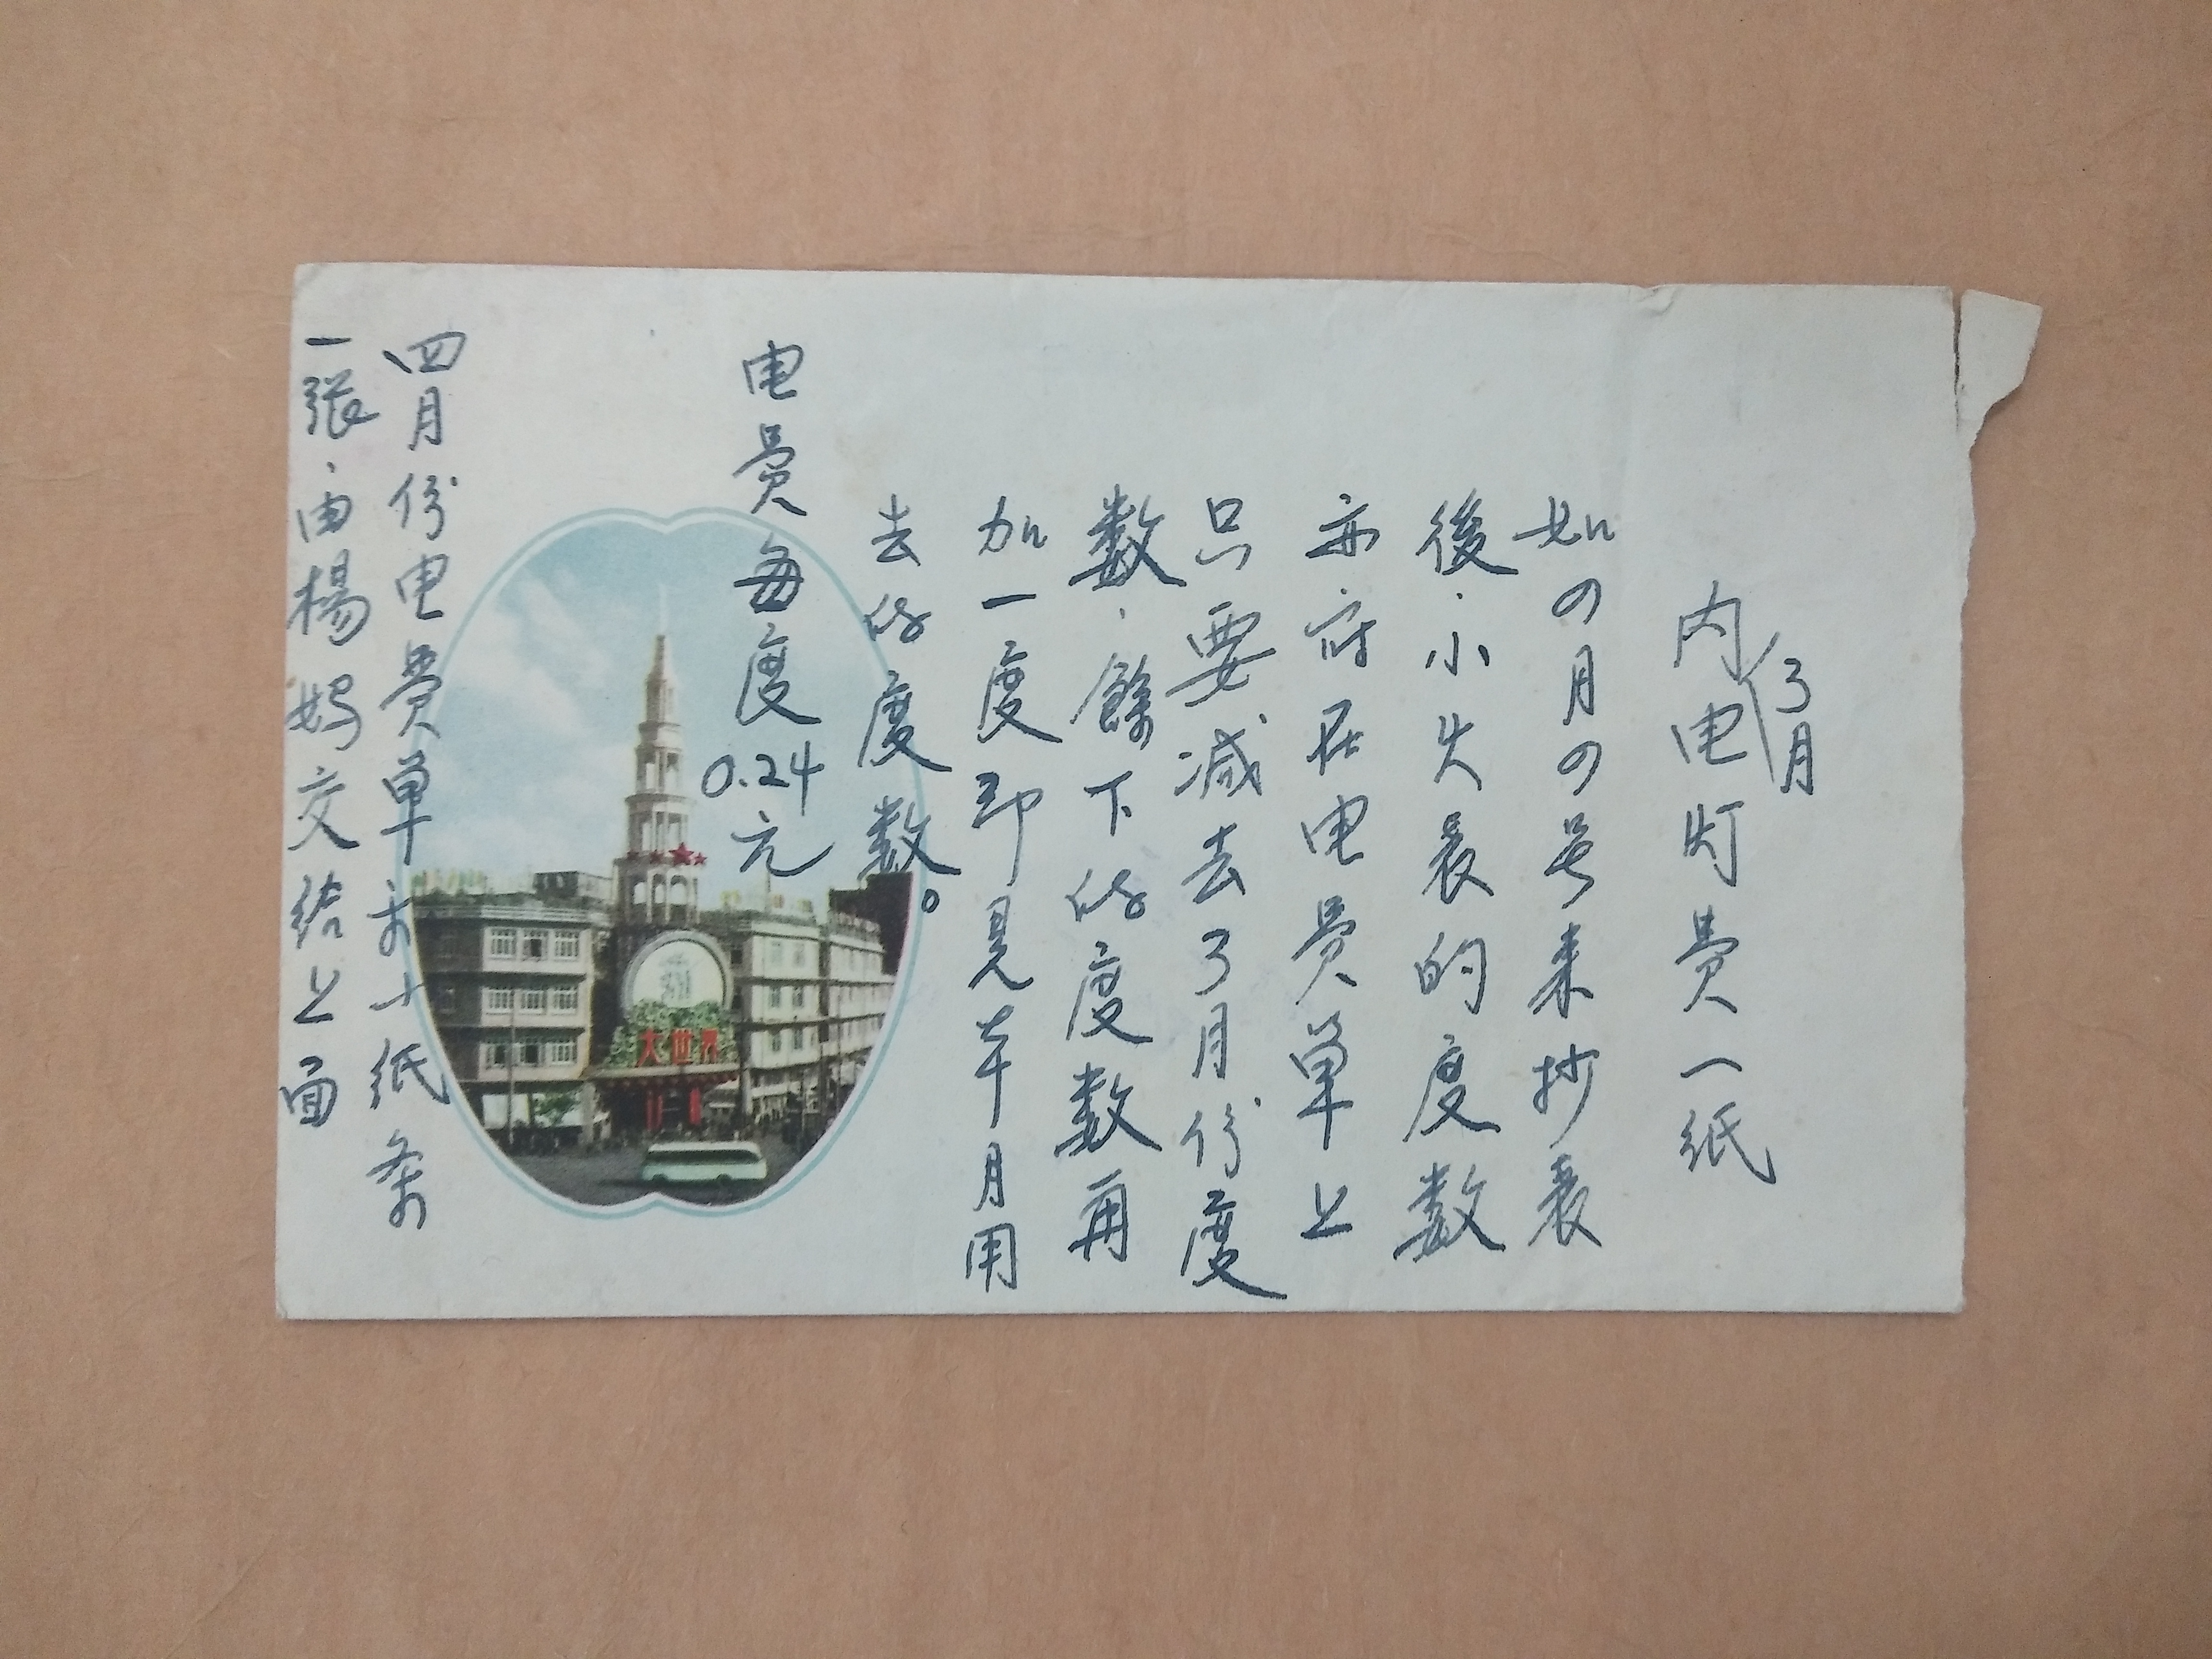 内3月电灯费一纸
如四月四号来抄表
後.小火表的度数
亦附在电费单上
只要减去3月份度
数.餘下的度数再
加一度即是本月用
去的度数。
电费每度0.24元
四月份电费单 小纸条
一張.由楊妈交给上面
大世界